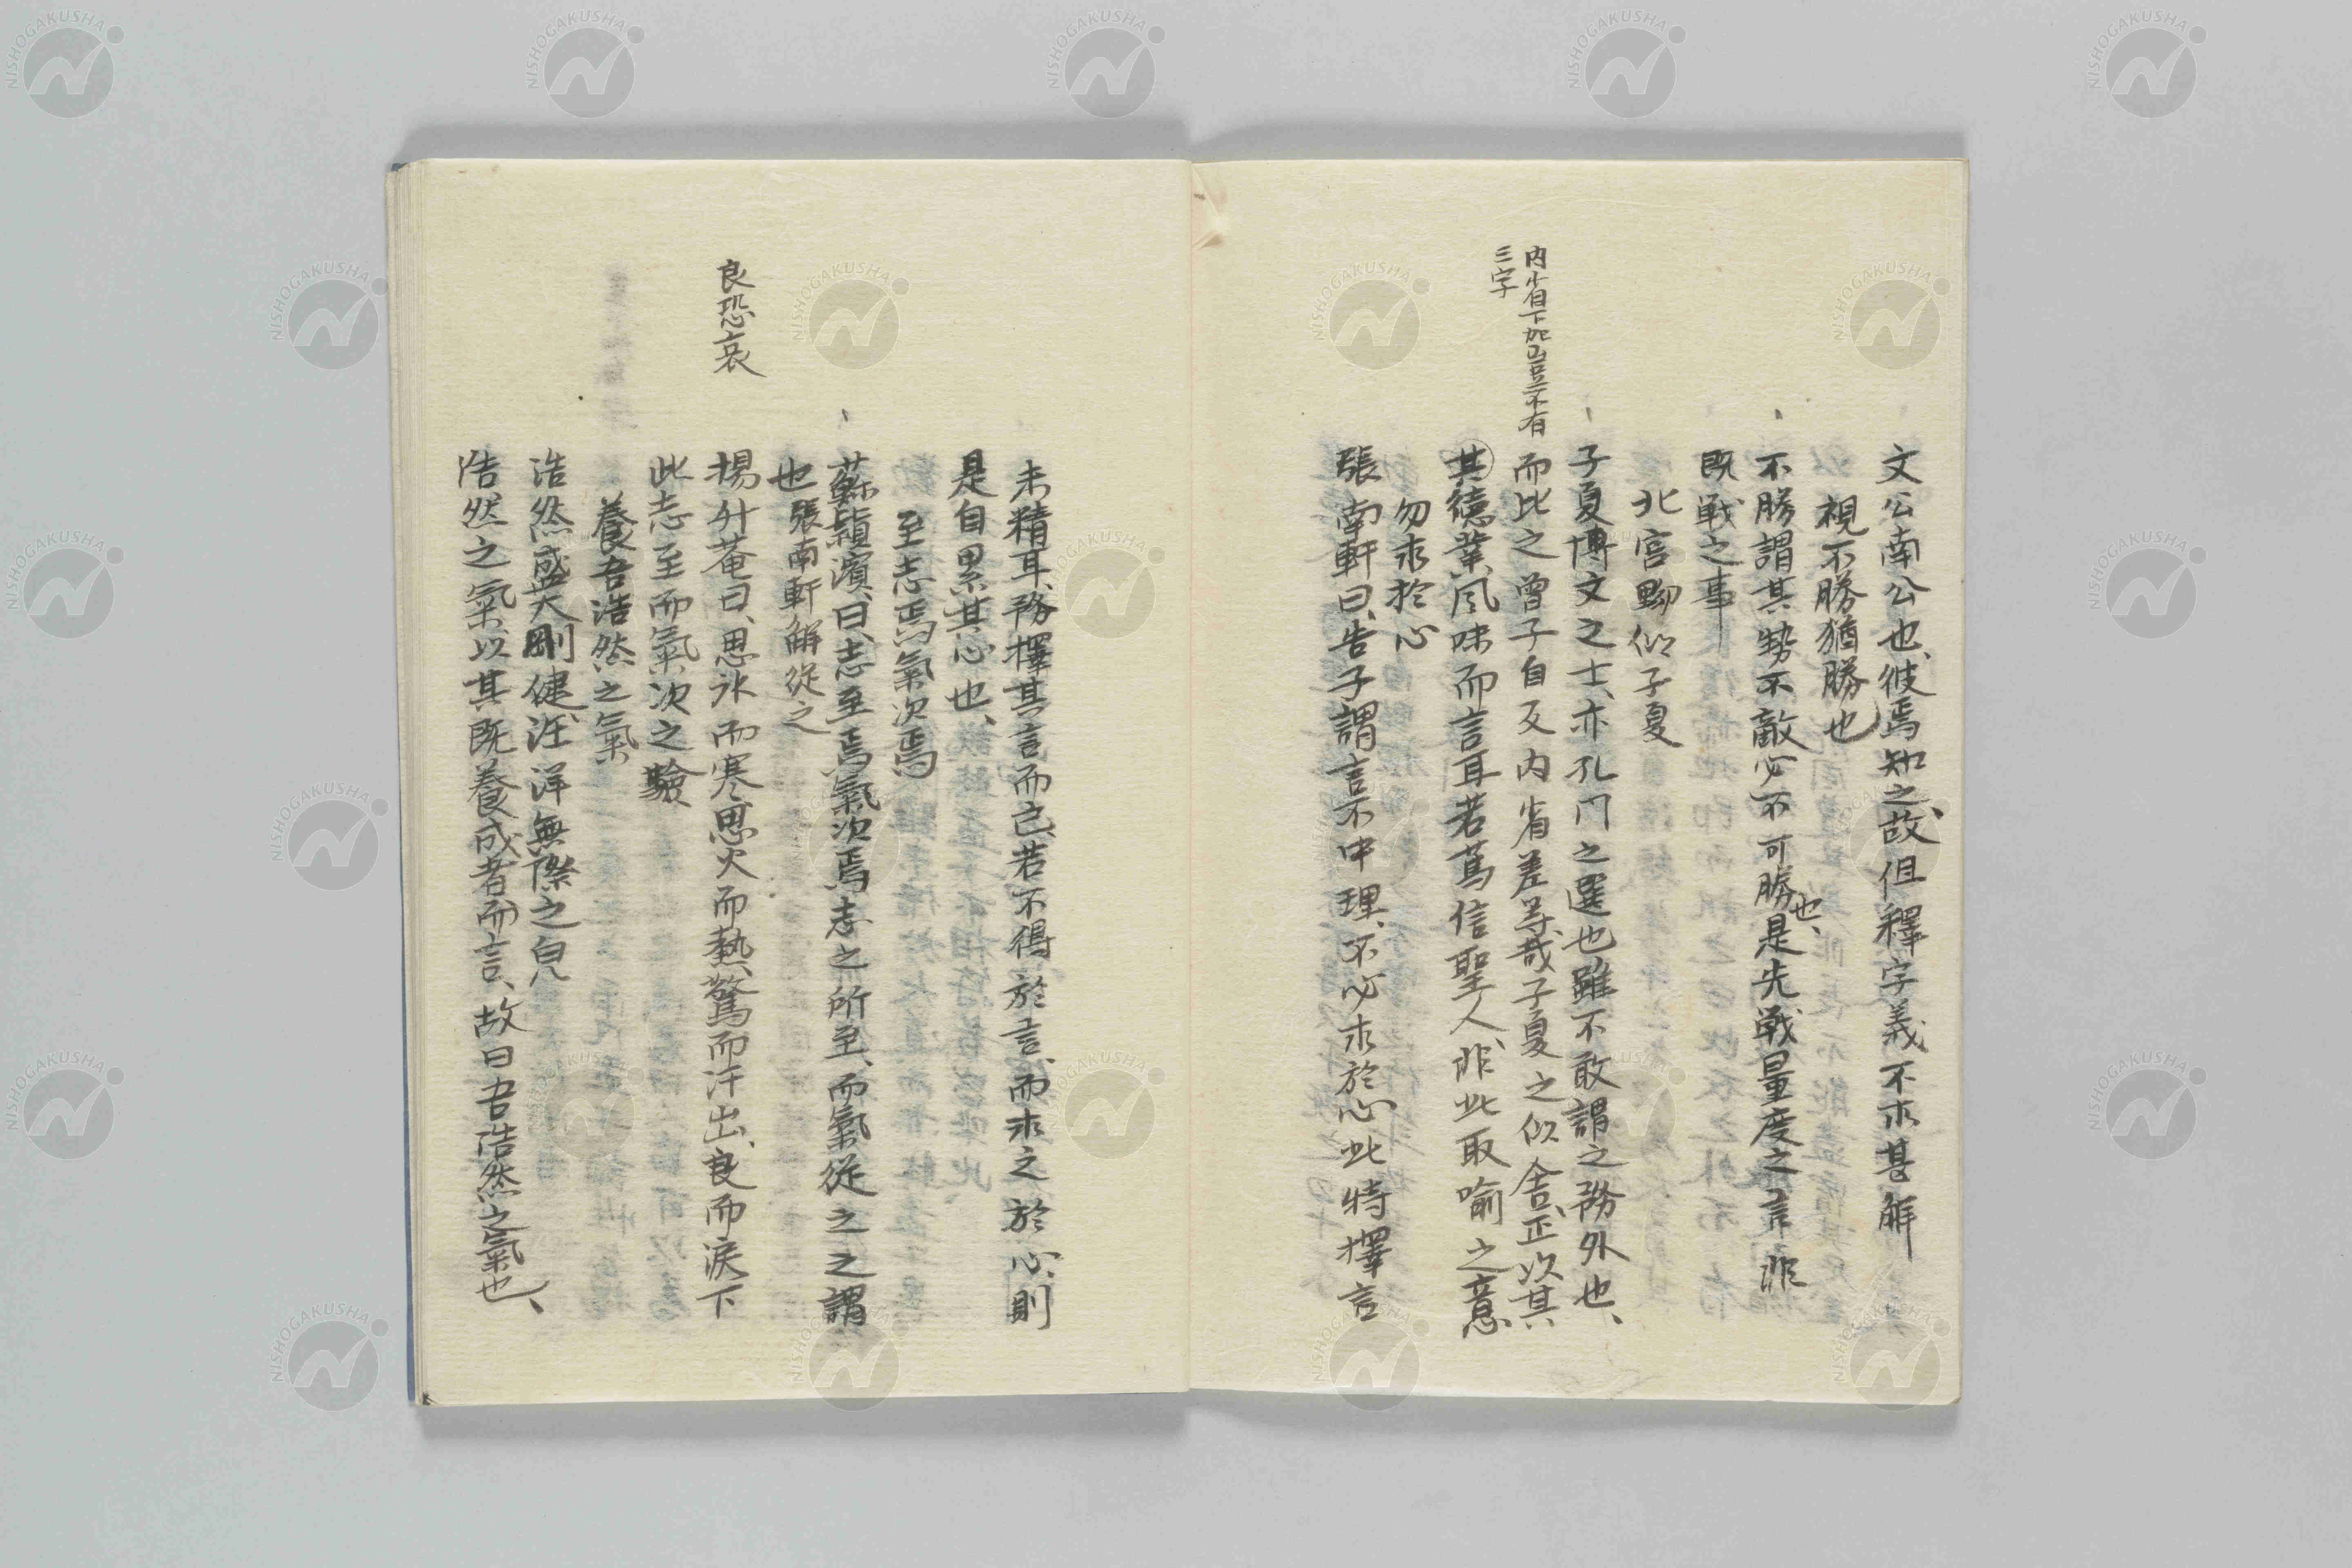 文公南公也、彼焉知之、故但釋字義不求甚解
視不勝猶勝也
不勝謂其勢不敵必不可勝也、是先戰量度之言非
既戰之事
北宮黝似子夏
子夏博文之士、亦孔門之選也雖不敢謂之務外也、
內省下加豈不有
三字
而比之曾子自反內省差等哉子夏之似舍、正以其
其德業風味而言耳若篤信聖人、非此取喻之意
勿求於心
張南軒曰、告子謂言不中理、不必求於心此特擇言
未精耳、務擇其言而已、若不得於言、而求之於心、則
是自累其心也、
至志焉氣次焉
蘇潁濱、曰、志至焉氣次焉志之所至、而氣從之之謂
也張南軒解從之
良恐哀
楊升菴曰、思氷而寒思火而熱、驚而汗出、良而淚下
此志至而氣次之驗
養吾浩然之氣
浩然盛大剛健汪洋無際之皃
浩然之氣以其既養成者而言、故曰吾浩然之氣也、
NISHOGAKUSHA